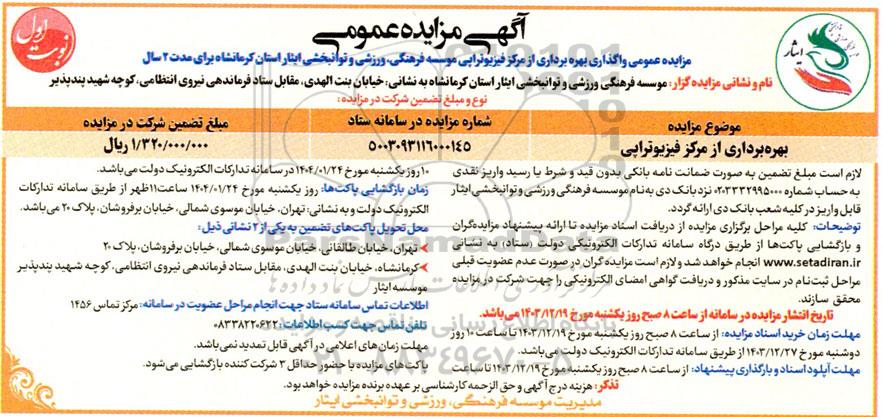 آگهی مزایده عمومی
نوبت اول
ایثار
مزایده عمومی واگذاری بهره برداری از مرکز فیزیوتراپی موسسه فرهنگی، ورزشی و توانبخشی ایثار استان کرمانشاه برای مدت ۲ سال
نام و نشانی مزایده گزار: موسسه فرهنگی ورزشی و توانبخشی ایثار استان کرمانشاه به نشانی: خیابان بنت الهدی، مقابل ستاد فرماندهی نیروی انتظامی، کوچه شهید پندپذیر
نوع و مبلغ تضمین شرکت در مزایده:
موضوع مزایده
شماره مزایده در سامانه ستاد
مبلغ تضمین شرکت در مزایده
بهره‌برداری از مرکز فیزیوتراپی
۵۰۰۳۰۹۳۱۱۶۰۰۰۱۴۵
۱/۳۲۰/۰۰۰/۰۰۰ ریال
لازم است مبلغ تضمین به صورت ضمانت نامه بانکی بدون قید و شرط یا رسید واریز نقدی
به حساب شماره ۰۲۰۳۳۳۲۹۹۵۰۰۰ نزد بانک دی به نام موسسه فرهنگی ورزشی و توانبخشی ایثار
قابل واریز در کلیه شعب بانک دی ارائه گردد.
توضیحات: کلیه مراحل برگزاری مزایده از دریافت اسناد مزایده تا ارائه پیشنهاد مزایده‌گران
و بازگشایی پاکت‌ها از طریق درگاه سامانه تدارکات الکترونیکی دولت (ستاد) به نشانی
www.setadiran.ir انجام خواهد شد و لازم است مزایده گران در صورت عدم عضویت قبلی
مراحل ثبت‌نام در سایت مذکور و دریافت گواهی امضای الکترونیکی را جهت شرکت در مزایده
محقق سازند.
تاریخ انتشار مزایده در سامانه از ساعت ۸ صبح روز یکشنبه مورخ ۱۴۰۳/۱۲/۱۹ می‌باشد.
مهلت زمان خرید اسناد مزایده: از ساعت ۸ صبح روز یکشنبه مورخ ۱۴۰۳/۱۲/۱۹ تا ساعت ۱۰ روز
دوشنبه مورخ ۱۴۰۳/۱۲/۲۷ از طریق سامانه تدارکات الکترونیک دولت می‌باشد.
مهلت آپلود اسناد و بارگذاری پیشنهاد: از ساعت ۸ صبح روز یکشنبه مورخ ۱۴۰۳/۱۲/۱۹ تا ساعت
۱۰ روز یکشنبه مورخ ۱۴۰۴/۰۱/۲۴ در سامانه تدارکات الکترونیک دولت می‌باشد.
زمان بازگشایی پاکت‌ها: روز یکشنبه مورخ ۱۴۰۴/۰۱/۲۴ ساعت ۱۱ ظهر از طریق سامانه تدارکات
الکترونیک دولت و به نشانی: تهران، خیابان موسوی شمالی، خیابان برفروشان، پلاک ۲۰ می‌باشد.
محل تحویل پاکت‌های تضمین به یکی از ۲ نشانی ذیل:
تهران، خیابان طالقانی، خیابان موسوی شمالی، خیابان برفروشان، پلاک ۲۰
کرمانشاه، خیابان بنت الهدی، مقابل ستاد فرماندهی نیروی انتظامی، کوچه شهید پندپذیر
موسسه ایثار
اطلاعات تماس سامانه ستاد جهت انجام مراحل عضویت در سامانه: مرکز تماس ۱۴۵۶
تلفن تماس جهت کسب اطلاعات: ۰۸۳۳۸۲۲۰۶۲۲
مهلت زمان‌های اعلامی در آگهی قابل تمدید نمی‌باشد.
پاکت‌های مزایده با حضور حداقل ۳ شرکت کننده بازگشایی می‌شود.
تذکر: هزینه درج آگهی و حق الزحمه کارشناسی بر عهده برنده مزایده خواهد بود.
مدیریت موسسه فرهنگی، ورزشی و توانبخشی ایثار